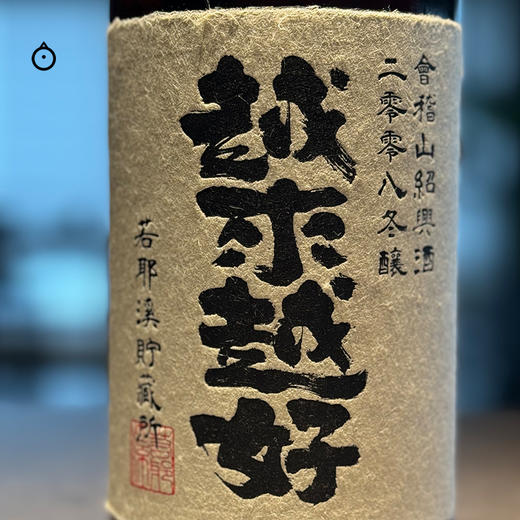 會稽山紹興酒
二零零八冬釀
越來越好
若耶溪貯藏所